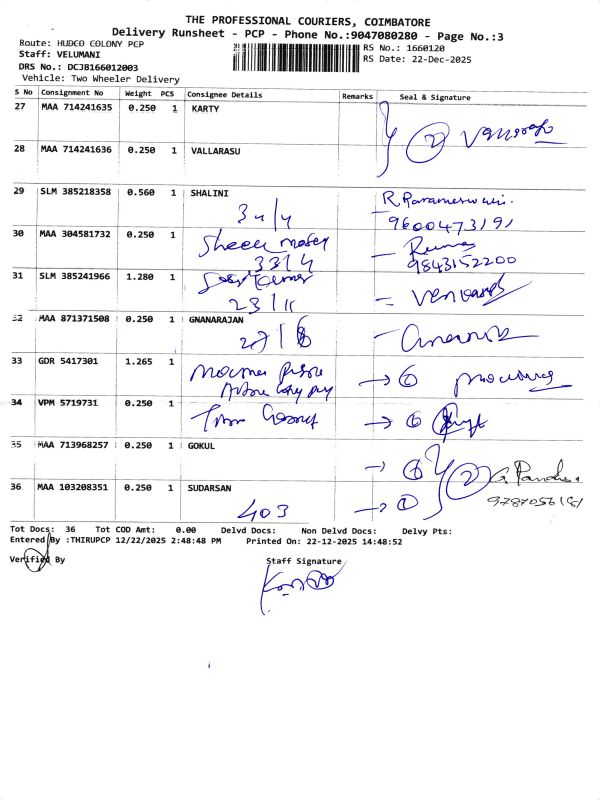 THE PROFESSIONAL COURIERS, COIMBATORE
Delivery Runsheet - PCP - Phone No.:9047080280 - Page No.:3
Route: HUDCO COLONY PCP
Staff: VELUMANI
DRS No.: DCJB166012003
Vehicle: Two Wheeler Delivery
RS No.: 1660120
RS Date: 22-Dec-2025
S No Consignment No Weight PCS Consignee Details Remarks Seal & Signature
27 MAA 714241635 0.250 1 KARTY
2
28 MAA 714241636 0.250 1 VALLARASU
29 SLM 385218358 0.560 1 SHALINI
R. Parameswari.
9600473191
30 MAA 304581732 0.250 1
33/4
9843152200
31 SLM 385241966 1.280 1
23/11
32 MAA 871371508 0.250 1 GNANARAJAN
33 GDR 5417301 1.265 1
34 VPM 5719731 0.250 1
35 MAA 713968257 0.250 1 GOKUL
2
36 MAA 103208351 0.250 1 SUDARSAN
403
1
Tot Docs: 36 Tot COD Amt: 0.00 Delvd Docs: Non Delvd Docs: Delvy Pts:
Entered By :THIRUPCP 12/22/2025 2:48:48 PM Printed On: 22-12-2025 14:48:52
Verified By
Staff Signature